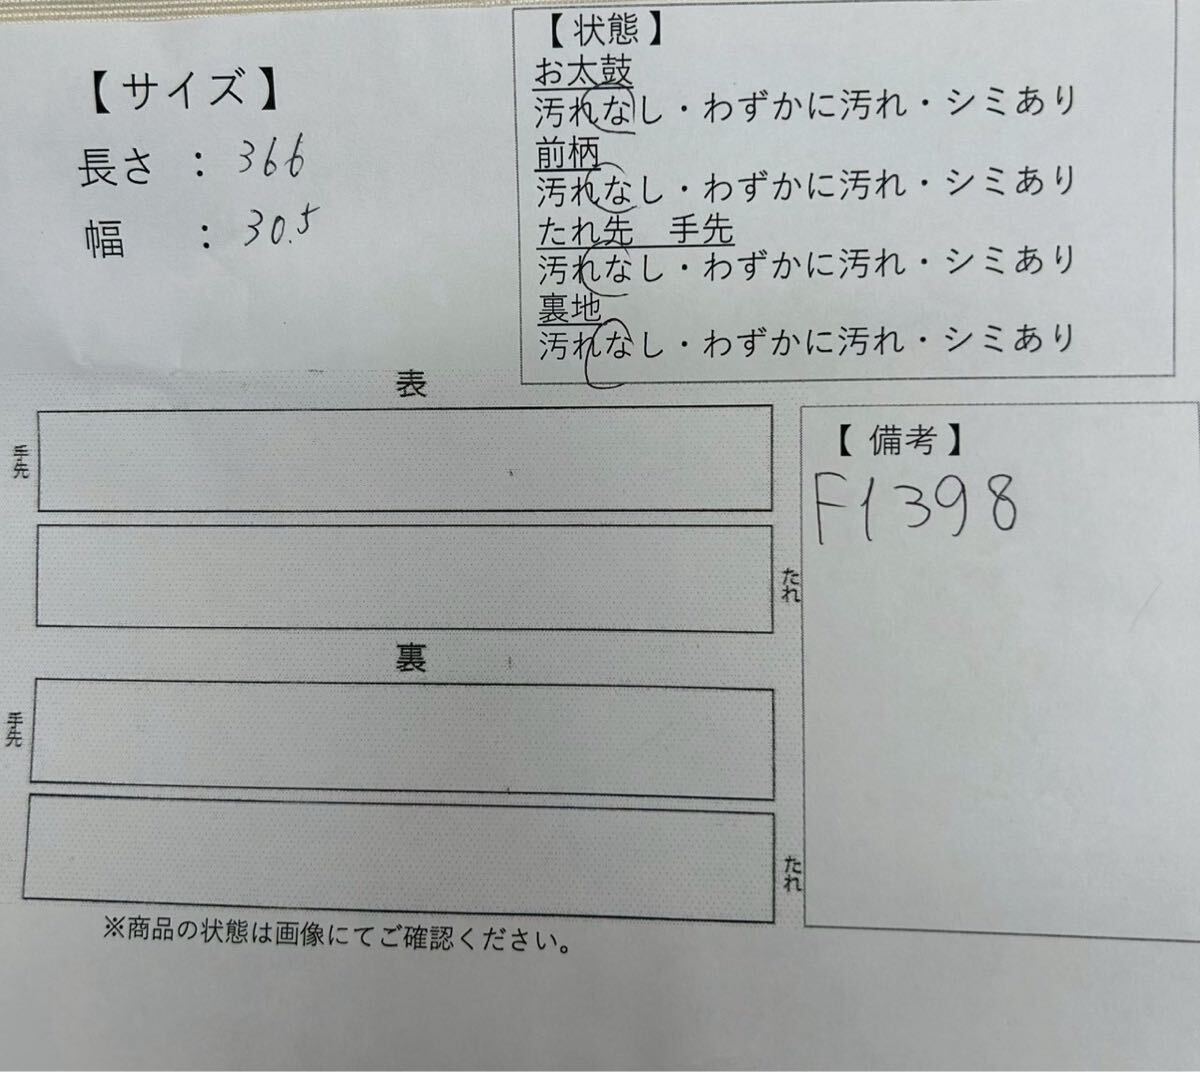 【サイズ】
長さ ： 366
幅 ： 30.5
【状態】
お太鼓
汚れなし・わずかに汚れ・シミあり
前柄
汚れなし・わずかに汚れ・シミあり
たれ先 手先
汚れなし・わずかに汚れ・シミあり
裏地
汚れなし・わずかに汚れ・シミあり
表
手先
たれ
裏
手先
たれ
【備考】
F1398
※商品の状態は画像にてご確認ください。